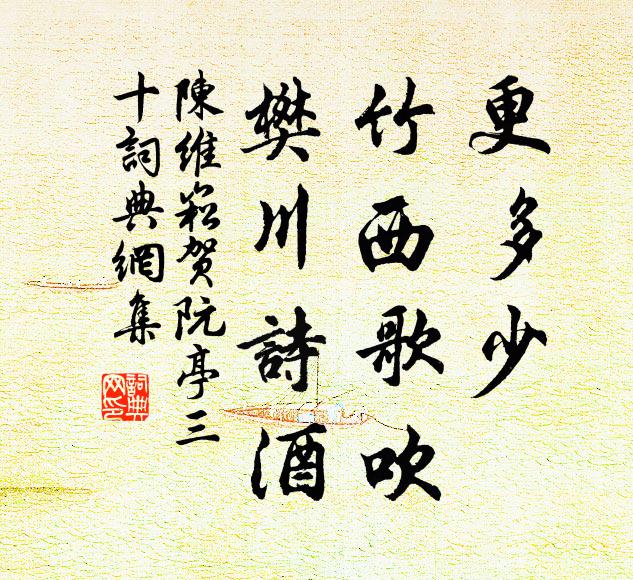 更多少
竹西歌吹
樊川詩酒
陳維崧賀阮亭三
十詞典網集
詞典
网印